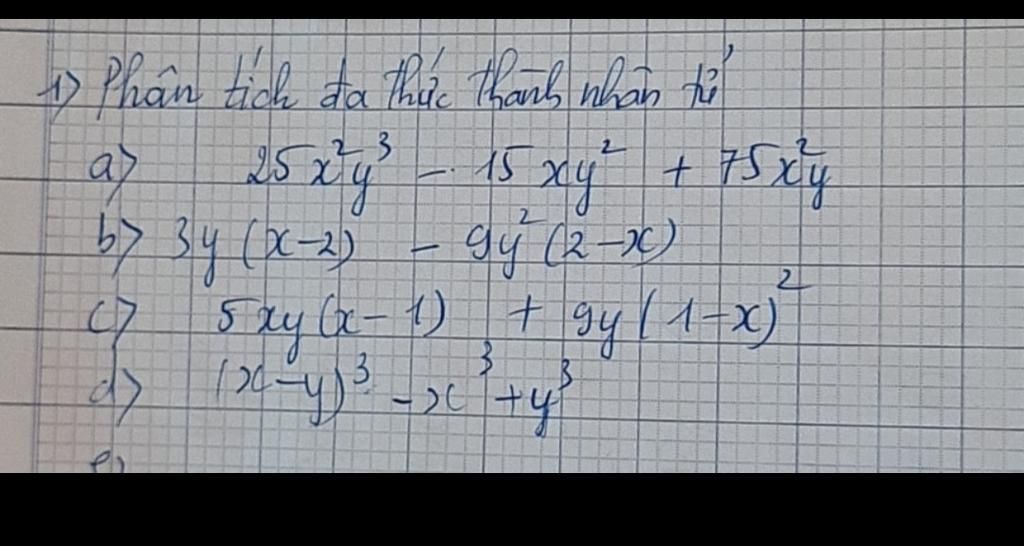 1) Phân tích đa thức thành nhân tử
a) 25x²y³ - 15xy² + 75x²y
b) 3y(x-2) - 9y²(2-x)
c) 5xy(x-1) + 9y(1-x)²
d) (x-y)³ - x³ + y³
e)